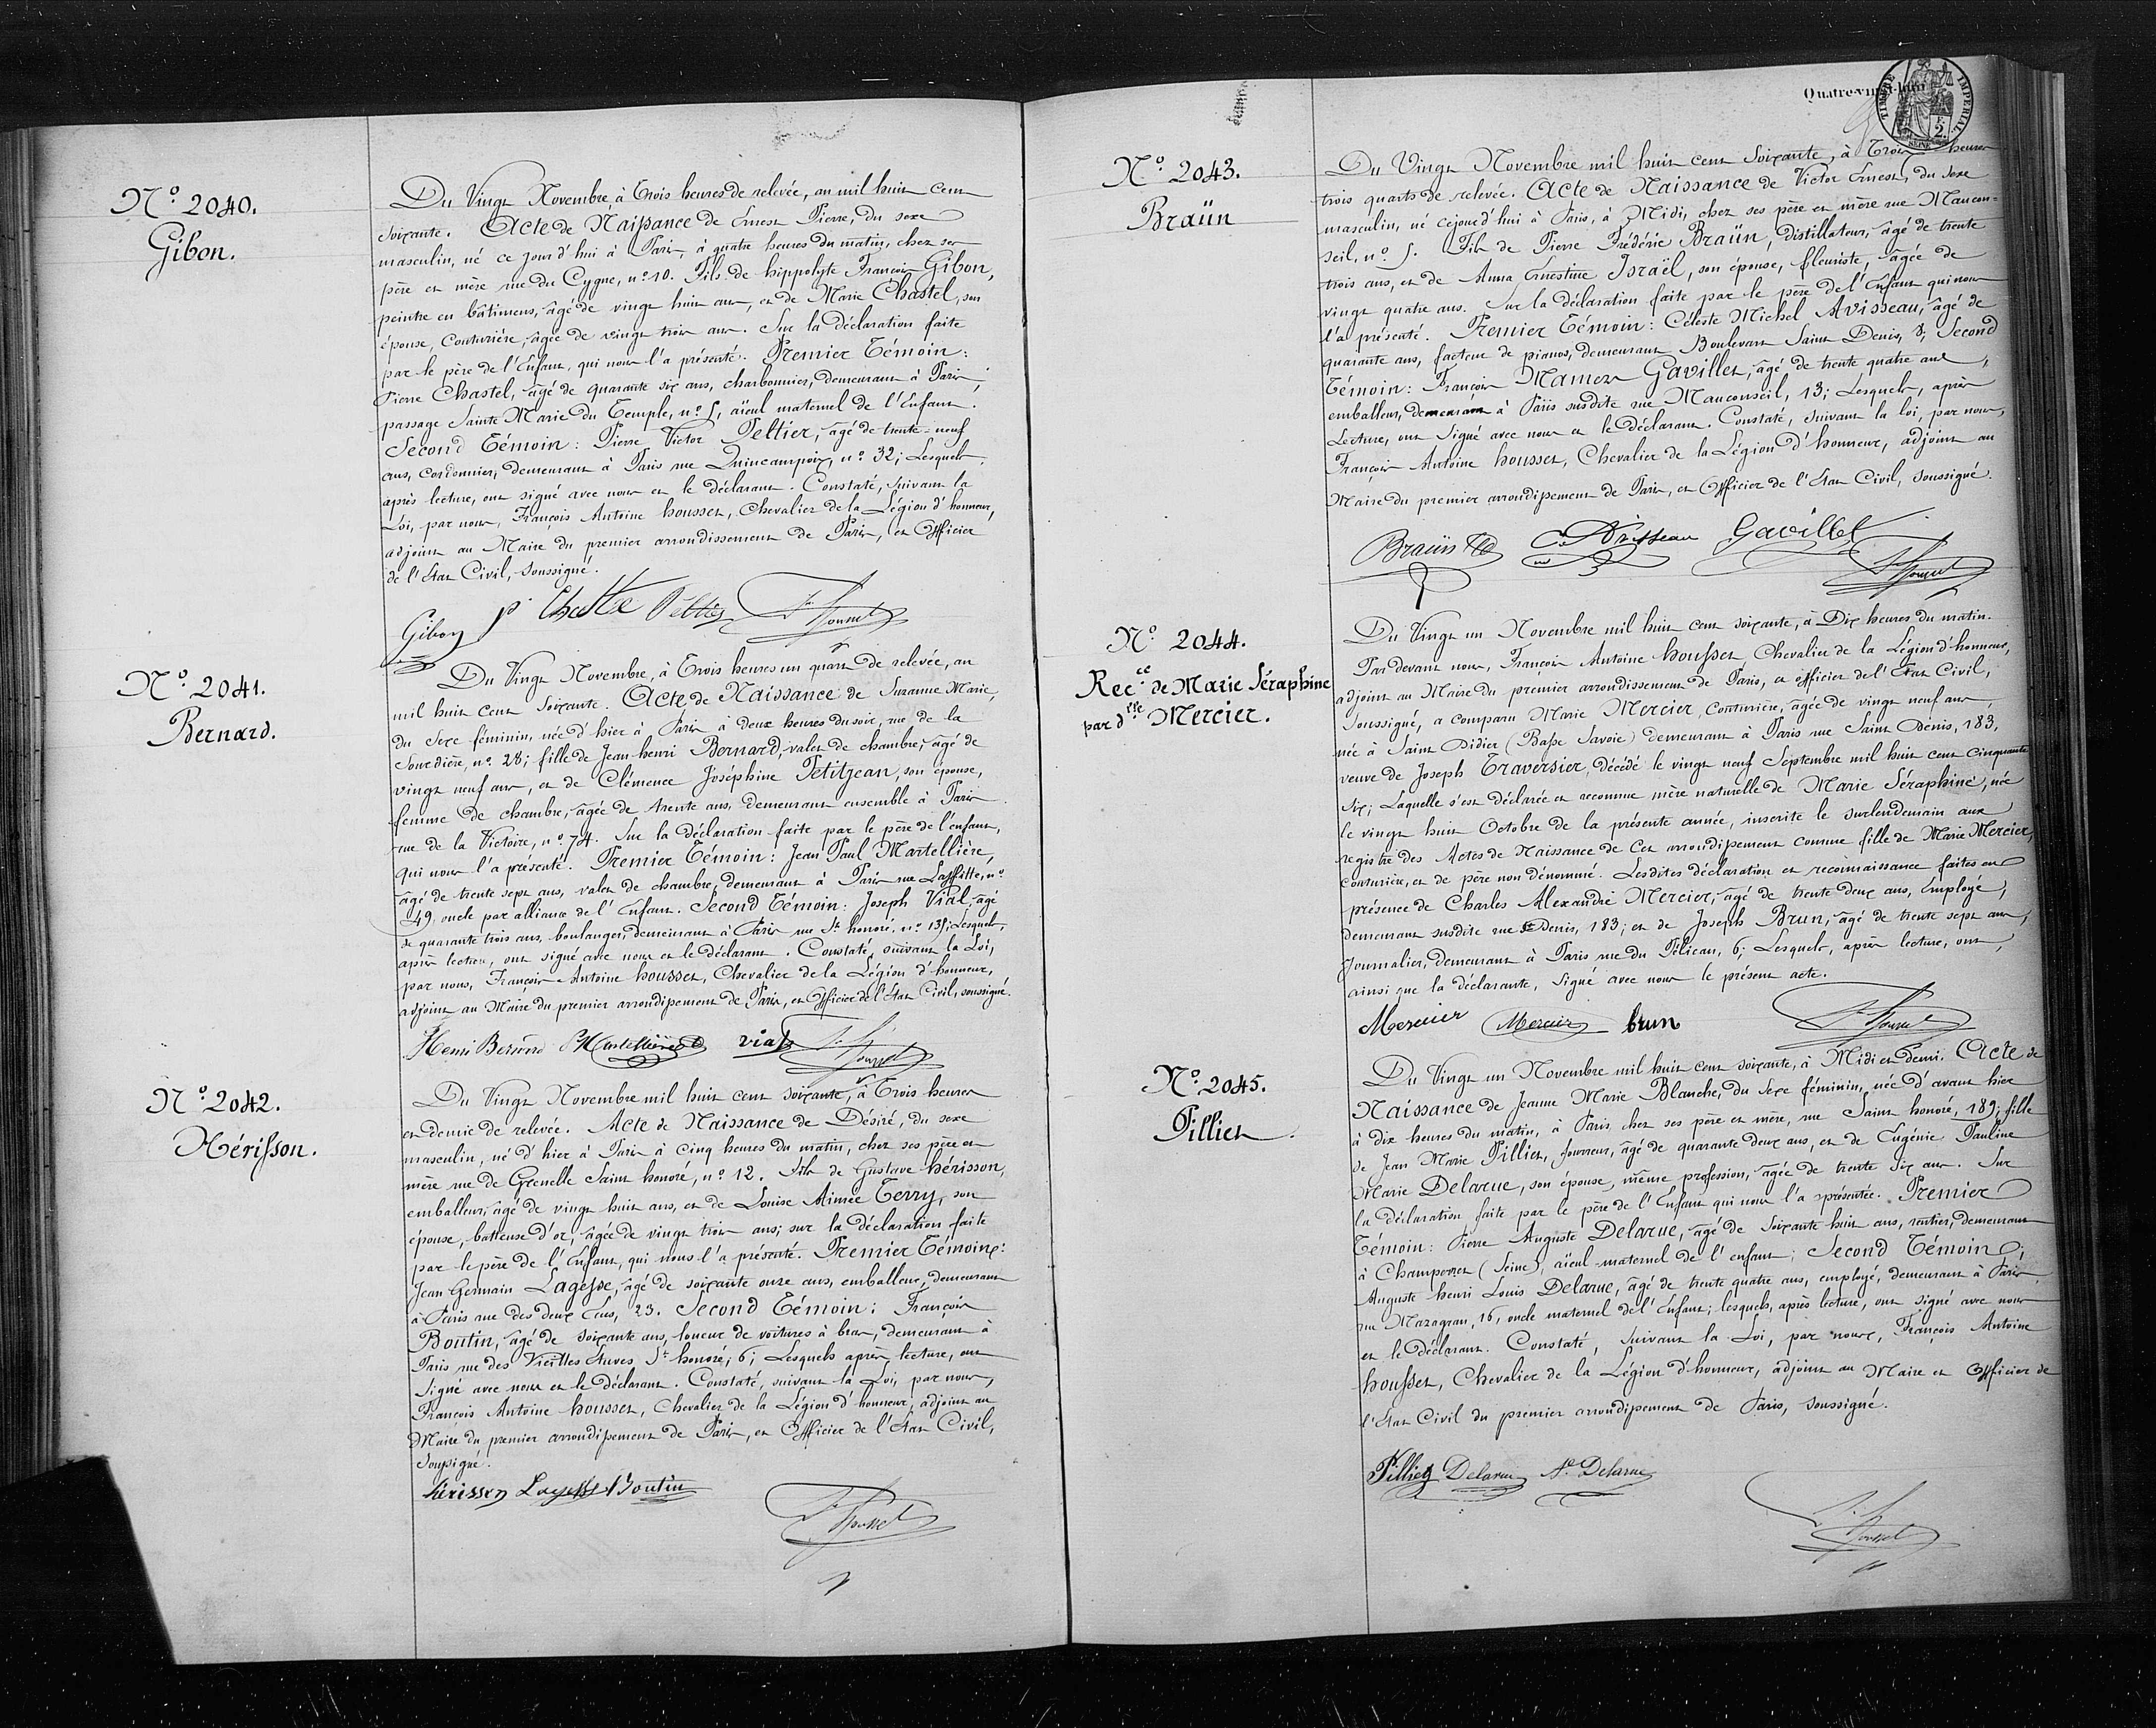 N.o 2040.
Gibon.
Du Vingt Novembre, à Trois heures de relevée, an mil huit cent
soixante. Acte de Naissance de Ernest Pierre, du sexe
masculin, né ce jour d'hui à Paris, à quatre heures du matin, chez ses
père et mère rue du Cygne, n.o 10. Fils de hippolyte François Gibon,
peintre en bâtimens, âgé de vingt huit ans, et de Marie Chastel, son
épouse, Couturière, âgée de vingt trois ans. Sur la déclaration faite
par le père de l'Enfant, qui nous l'a présenté. Premier Témoin:
Pierre Chastel, âgé de quarante six ans, charbonnier, demeurant à Paris,
passage Sainte Marie du Temple, n.o 5, aïeul maternel de l'Enfant.
Second Témoin: Pierre Victor Peltier, âgé de trente-neuf
ans, Cordonnier, demeurant à Paris rue Quincampoix, n.o 32; Lesquels,
après lecture, ont signé avec nous et le déclarant. Constaté, suivant la
Loi, par nous, François Antoine housset, Chevalier de la Légion d'honneur,
adjoint au Maire du premier arrondissement de Paris, et Officier
de l'Etat Civil, soussigné.
Gibon Peltier f. housset
N.o 2041.
Bernard.
Du Vingt Novembre, à Trois heures un quart de relevée, an
mil huit cent soixante. Acte de Naissance de Suzanne Marie,
du sexe féminin, née d'hier à Paris à deux heures du soir, rue de la
Sourdière, n.o 28; fille de Jean henri Bernard, valet de chambre, âgé de
vingt neuf ans, et de Clémence Joséphine Petitjean, son épouse,
femme de chambre, âgée de trente ans, demeurant ensemble à Paris
rue de la Victoire, n.o 74. Sur la déclaration faite par le père de l'enfant,
qui nous l'a présenté. Premier Témoin: Jean Paul Martellière,
âgé de trente sept ans, valet de chambre, demeurant à Paris rue Laffitte, n.o
49, oncle par alliance de l'Enfant. Second Témoin: Joseph Vial, âgé
de quarante trois ans, boulanger, demeurant à Paris rue St. honoré, n.o 135; Lesquels,
après lecture, ont signé avec nous et le déclarant. Constaté, suivant la Loi,
par nous, François Antoine housset, Chevalier de la Légion d'honneur,
adjoint au Maire du premier arrondissement de Paris, et Officier de l'Etat Civil, soussigné.
Henri Bernard Martellière vial f. housset
N.o 2042.
Hérisson.
Du Vingt Novembre mil huit cent soixante, à Trois heures
et demie de relevée. Acte de Naissance de Désiré, du sexe
masculin, né d'hier à Paris à cinq heures du matin, chez ses père et
mère rue de Grenelle Saint honoré, n.o 12. Fils de Gustave hérisson,
emballeur, âgé de vingt huit ans, et de Louise Aimée Terry, son
épouse, batteuse d'or, âgée de vingt trois ans; sur la déclaration faite
par le père de l'Enfant, qui nous l'a présenté. Premier Témoin:
Jean Germain Lagesse, âgé de soixante onze ans, emballeur, demeurant
à Paris rue des deux Ecus, 23. Second Témoin: François
Boutin, âgé de soixante ans, loueur de voitures à bras, demeurant à
Paris rue des Vieilles Etuves St. honoré, 6; Lesquels après lecture, ont
signé avec nous et le déclarant. Constaté, suivant la Loi, par nous,
François Antoine housset, Chevalier de la Légion d'honneur, adjoint au
Maire du premier arrondissement de Paris, et Officier de l'Etat Civil,
soussigné.
hérisson Lagesse Boutin
f. housset
Quatre-vingt-huit
TIMBRE IMPERIAL
2 F.
SEINE
N.o 2043.
Braün
Du Vingt Novembre mil huit cent Soixante, à Trois heures
trois quarts de relevée. Acte de Naissance de Victor Ernest, du sexe
masculin, né cejourd'hui à Paris, à Midi, chez ses père et mère rue Maucon=
seil, n.o 5. Fils de Pierre Frédéric Braün, distillateur, âgé de trente
trois ans, et de Anna Ernestine Israël, son épouse, fleuriste, âgée de
vingt quatre ans. Sur la déclaration faite par le père de l'Enfant qui nous
l'a présenté. Premier Témoin: Céleste Michel Avisseau, âgé de
quarante ans, facteur de pianos, demeurant Boulevart Saint Denis, 8; Second
Témoin: François Mamert Gavillet, âgé de trente quatre ans,
emballeur, demeurant à Paris susdite rue Mauconseil, 13; Lesquels, après
Lecture, ont signé avec nous et le déclarant. Constaté, suivant la loi, par nous,
François Antoine housset, Chevalier de la Légion d'honneur, adjoint au
Maire du premier arrondissement de Paris, et Officier de l'Etat Civil, soussigné.
Braün C. Avisseau Gavillet
f. housset
N.o 2044.
Rec.ce de Marie Séraphine
par d.lle Mercier.
Du Vingt un Novembre mil huit cent soixante, à Dix heures du matin.
Par devant nous, François Antoine housset, Chevalier de la Légion d'honneur,
adjoint au Maire du premier arrondissement de Paris, et officier de l'Etat Civil,
soussigné, a comparu Marie Mercier, Couturière, âgée de vingt neuf ans,
née à Saint Didier (Basse Savoie) demeurant à Paris rue Saint Denis, 183,
veuve de Joseph Traversier, décédé le vingt neuf Septembre mil huit cent cinquante
six; Laquelle s'est déclarée et reconnue mère naturelle de Marie Séraphine, née
le vingt huit Octobre de la présente année, inscrite le surlendemain aux
registre des Actes de Naissance de cet arrondissement comme fille de Marie Mercier,
couturière, et de père non dénommé. Lesdites déclaration et reconnaissance faites en
présence de Charles Alexandre Mercier, âgé de trente deux ans, Employé,
demeurant susdite rue St Denis, 183; et de Joseph Brun, âgé de trente sept ans,
Journalier, demeurant à Paris rue du Pélican, 6; Lesquels, après lecture, ont,
ainsi que la déclarante, signé avec nous le présent acte.
Mercier Mercier brun f. housset
N.o 2045.
Pilliet.
Du Vingt un Novembre mil huit cent soixante, à Midi et Demi. Acte de
Naissance de Jeanne Marie Blanche, du sexe féminin, née d'avant hier
à dix heures du matin, à Paris, chez ses père et mère, rue Saint honoré, 189; fille
de Jean Marie Pilliet, fourreur, âgé de quarante deux ans, et de Eugénie Pauline
Marie Delarue, son épouse, même profession, âgée de trente six ans. Sur
la déclaration faite par le père de l'Enfant qui nous l'a présentée. Premier
Témoin: Pierre Auguste Delarue, âgé de soixante huit ans, rentier, demeurant
à Champerret (Seine), aïeul maternel de l'enfant; Second Témoin;
Auguste henri Louis Delarue, âgé de trente quatre ans, employé, demeurant à Paris,
rue Mazagran, 16, oncle maternel de l'Enfant; lesquels, après lecture, ont signé avec nous
et le déclarant. Constaté, suivant la Loi, par nous, François Antoine
housset, Chevalier de la Légion d'honneur, adjoint au Maire et Officier de
l'Etat Civil du premier arrondissement de Paris, soussigné.
Pilliet Delarue Delarue
f. housset